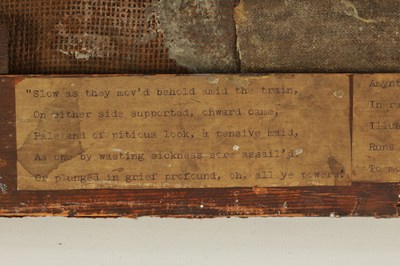 "Slow as they mov'd behold amid the train,
On either side supported, onward came,
Pale and of pitious look, a pensive maid,
As one by wasting sickness sore assail'd,
Or plunged in grief profound, oh, all ye powers!
Amynt
In
Runs
To